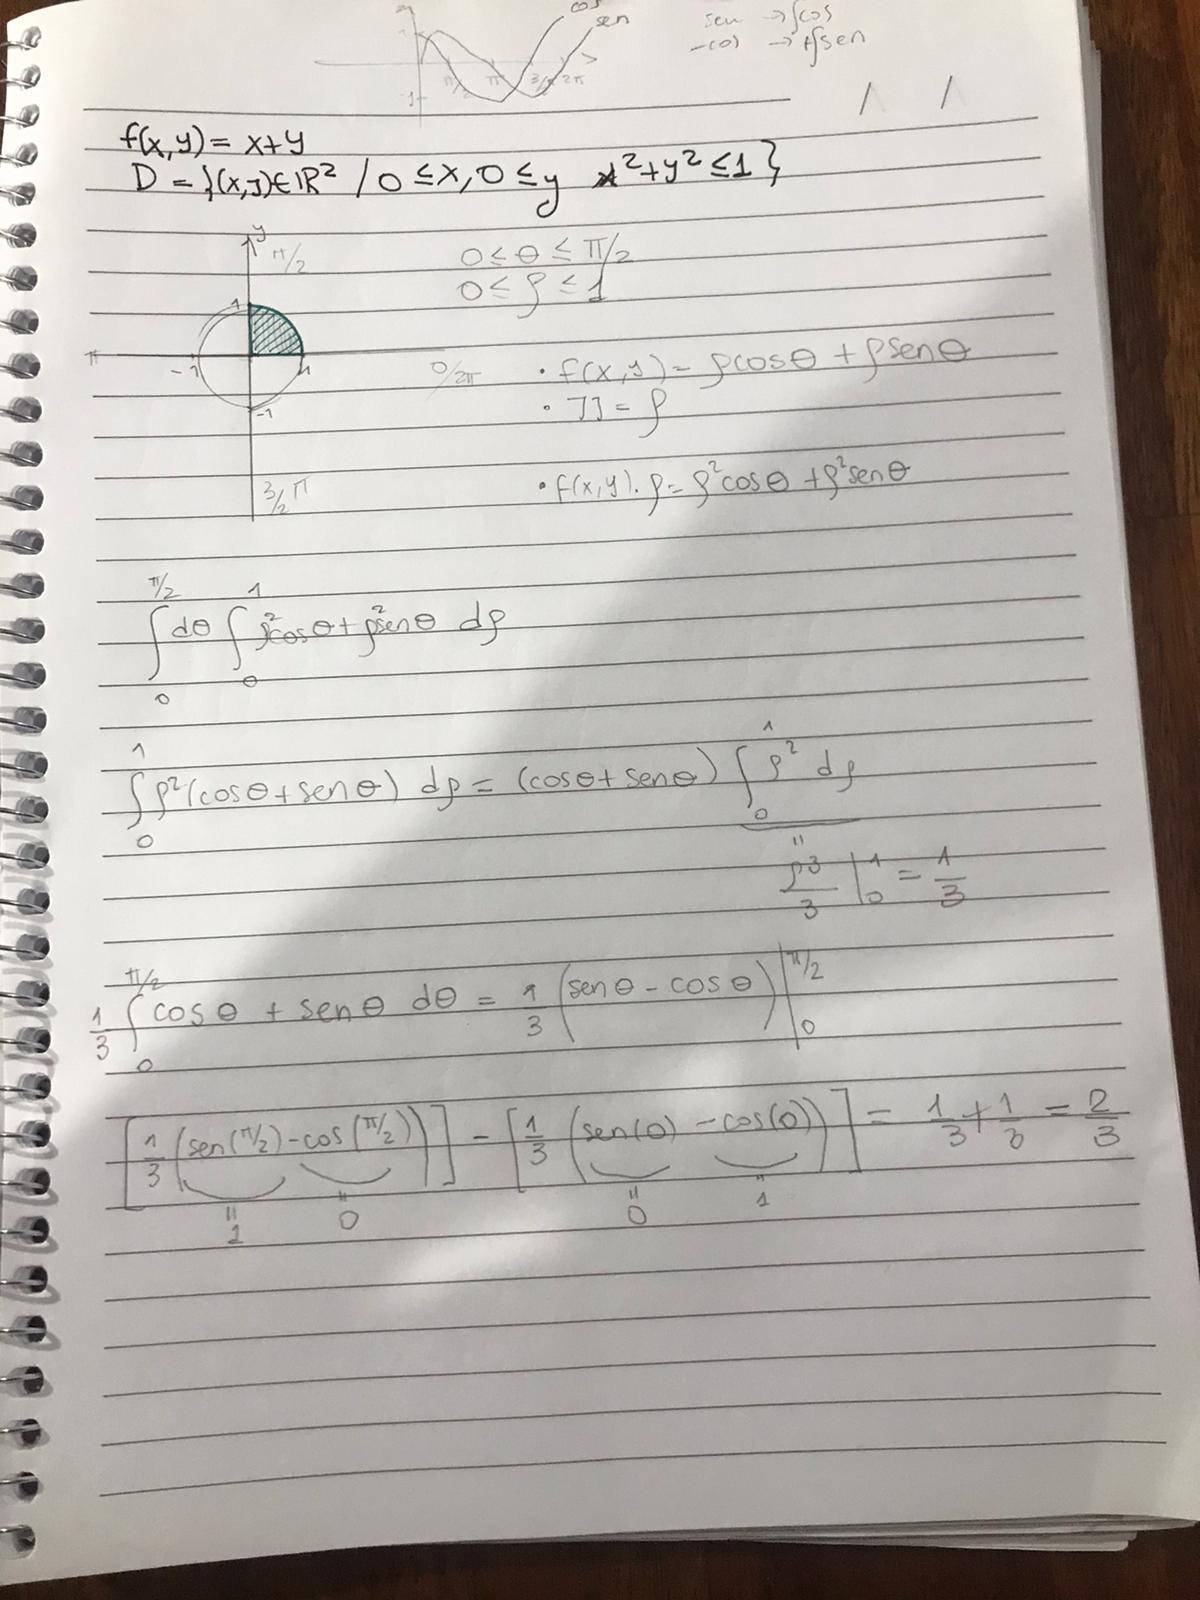 cos
sen
sen → ∫cos
-cos → ∫sen
1
π/2 π 3/2 2π
-1
f(x,y) = x+y
D = {(x,y)∈ℝ² / 0 ≤ x, 0 ≤ y x²+y² ≤ 1}
y
π/2
0 ≤ θ ≤ π/2
0 ≤ ρ ≤ 1
1
π -1 1 0/2π
-1
3/2 π
• f(x,y) = ρcosθ + ρsenθ
• JJ = ρ
• f(x,y).ρ = ρ²cosθ + ρ²senθ
∫₀^π/2 dθ ∫₀^1 ρ²cosθ + ρ²senθ dρ
∫₀^1 ρ²(cosθ + senθ) dρ = (cosθ + senθ) ∫₀^1 ρ² dρ
= ρ³/3 |₀^1 = 1/3
1/3 ∫₀^π/2 cosθ + senθ dθ = 1/3 (senθ - cosθ) |₀^π/2
[1/3 (sen(π/2) - cos(π/2))] - [1/3 (sen(0) - cos(0))] = 1/3 + 1/3 = 2/3
= 1 = 0 = 0 = 1